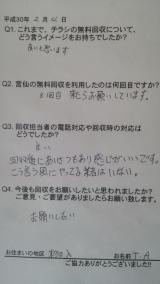 平成30年2月26日
Q1. これまで、チラシの無料回収について、
どう言うイメージをお持ちでしたか?
良いと思います
Q2. 宮仙の無料回収を利用したのは何回目ですか?
回目 お願いしています。
Q3. 回収担当者の電話対応や回収時の対応は
どうでしたか?
良い
回収後にあいさつもあり感じがいいです。
こう言う風にやってる者はいない。
Q4. 今後も回収をお願いしたいと思われましたか?
ご意見・ご要望がありましたらお願い致します。
お願いしたい
お住まいの地区
お名前 T.A
ご協力ありがとうございました!!